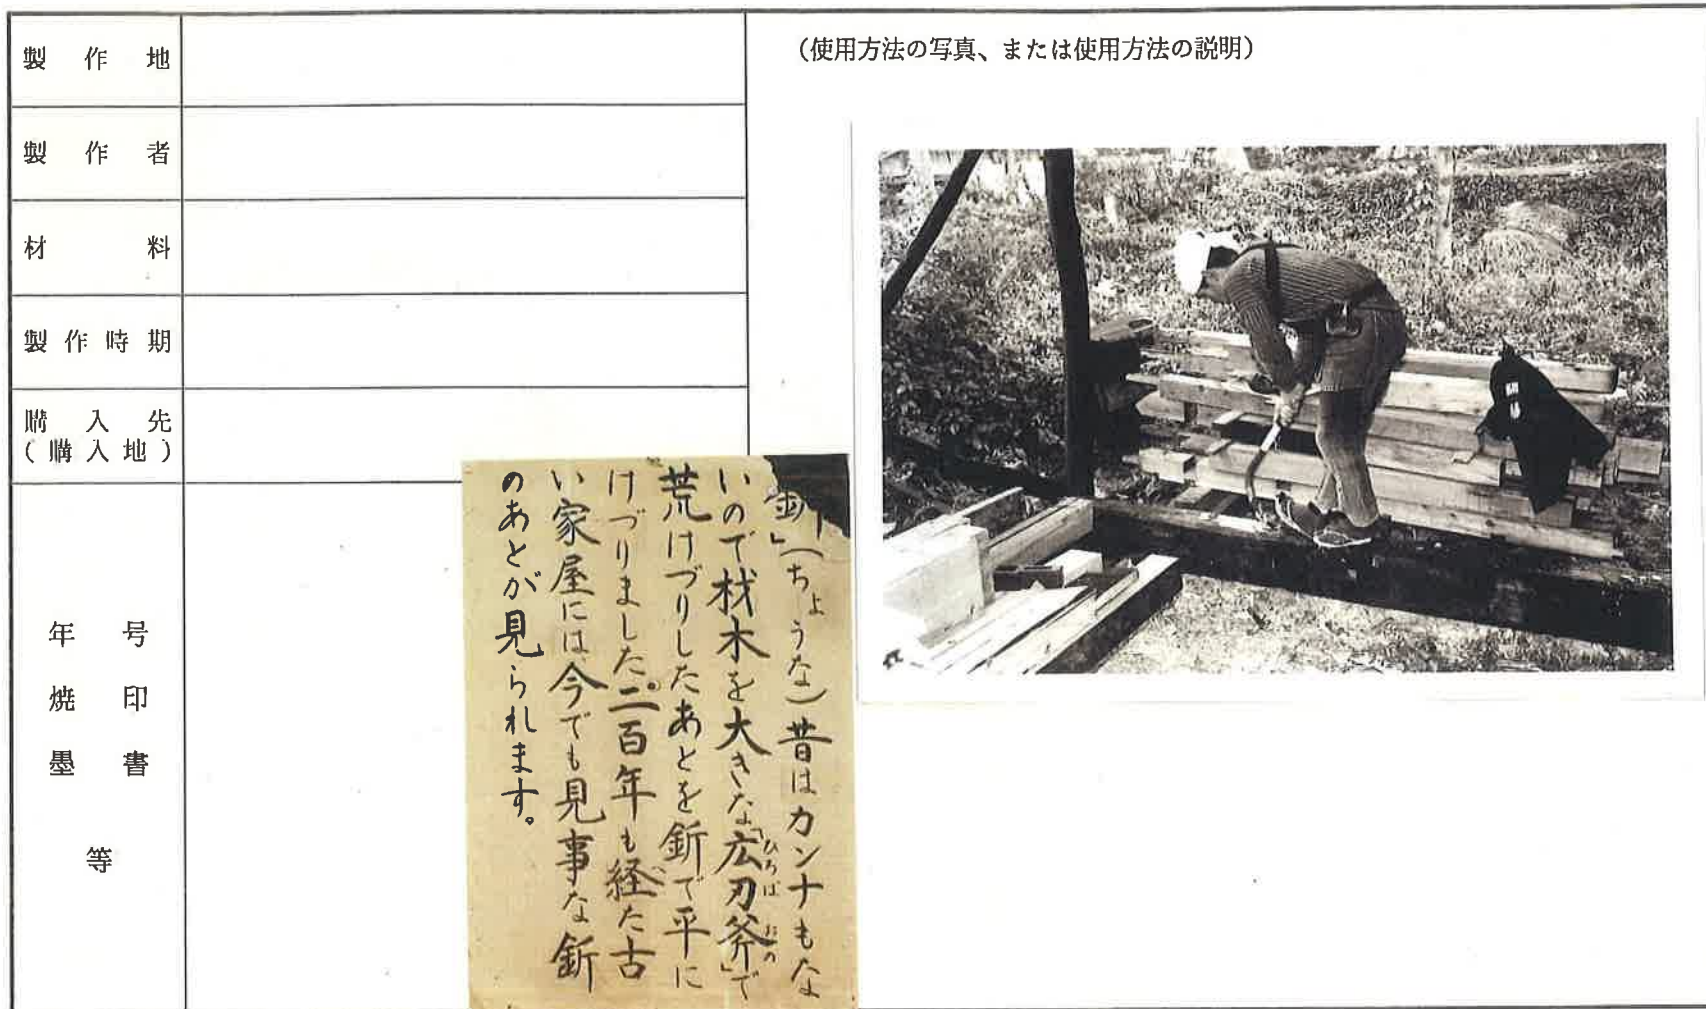 製作地
製作者
材料
製作時期
購入先
(購入地)
年号
焼印
墨書
等
(使用方法の写真、または使用方法の説明)
釿」(ちょうな)昔はカンナもな
いので材木を大きな「広刃斧」で
ひろば おの
荒けづりしたあとを釿で平に
けづりました。二百年も経た古
い家屋には今でも見事な釿
のあとが見られます。